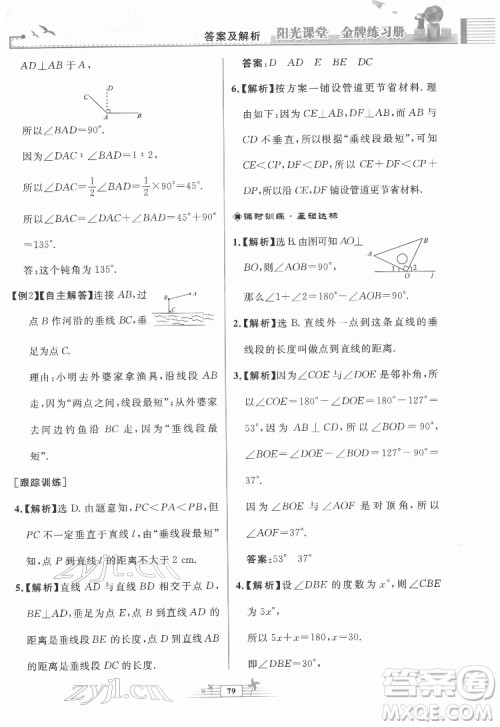 答案及解析
阳光课堂 金牌练习册
AD⊥AB于A,
所以∠BAD=90°.
因为∠DAC∶∠BAD=1∶2,
所以∠DAC=1/2∠BAD=1/2×90°=45°,
所以∠BAC=∠DAC+∠BAD=45°+90°
=135°.
答:这个钝角为135°.
【例2】【自主解答】连接AB,过
点B作河沿的垂线BC,垂
足为点C.
理由:小明去外婆家拿渔具,沿线段AB
走,是因为“两点之间,线段最短”;从外婆家
去河边钓鱼沿BC走,是因为“垂线段最
短”.
[跟踪训练]
4.【解析】选D.由题意知,PC不一定是点P
到直线l的距离,根据“垂线段最短”可
知,点P到直线l的距离不大于2 cm.
5.【解析】直线AD与直线BE相交于点D,
BE⊥AD,垂足为点D,点A到直线BE的
距离是垂线段AD的长度,点B到直线AD
的距离是垂线段BE的长度.
答案:D AD A BE BE
6.【解析】按方案一铺设管道更节省材料.
理由如下:因为CE⊥AB,DF⊥AB,CD与
AB不垂直,所以根据“垂线段最短”可知
CE<CP,DF<DP,所以CE+DF<CP+
DP,所以沿CE,DF铺设管道更节省材料.
课时训练·基础达标
1.【解析】选B.由图可知AO⊥
BO,
所以∠AOB=90°.
那么∠1+∠2=90°.
2.【解析】选B.直线外一点到这条直线的垂
线段的长度叫做点到直线的距离.
3.【解析】因为∠COE与∠DOE是邻补角,所
以∠COE=180°-∠DOE=180°-127°=
53°;
因为OE⊥AB,所以∠BOE=90°,
所以∠BOC=∠BOE-∠COE=90°-
53°=37°,
所以∠AOD=∠BOC=37°.
答案:53° 37°
4.【解析】设∠DBE的度数为x°,则∠CBE
为5x°,
所以∠DBE+∠CBE=180°,
即x+5x=180,
所以x=30,即∠DBE=30°.
79
zyjl.cn
zyjl.cn
答案圈
MXQE.COM